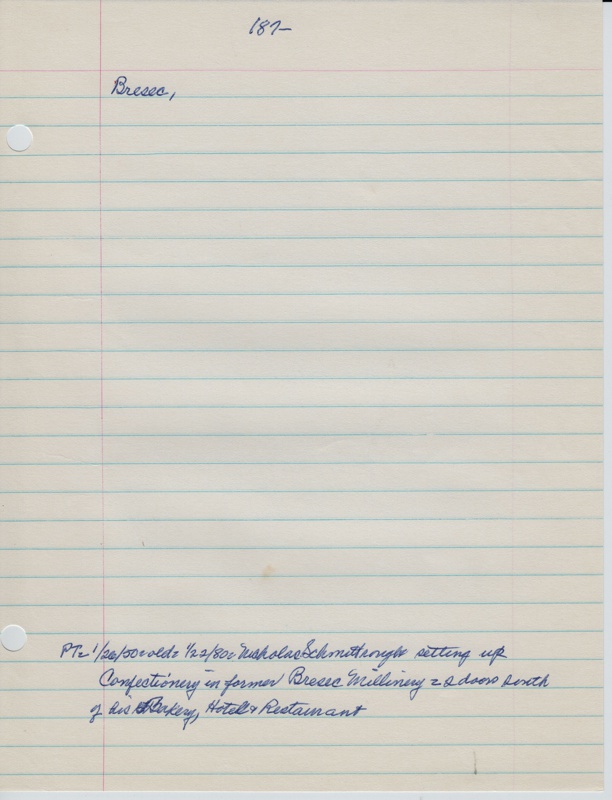 187-
Bresec,
PT= 1/26/50=old= 1/22/80= Nicholas Schmitt setting up
Confectionery in former Bresec Millinery = 2 doors south
of his Bakery, Hotel & Restaurant